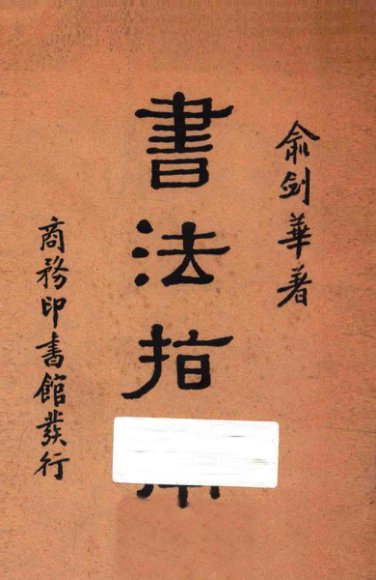 俞剑華著
書法指
商務印書館發行